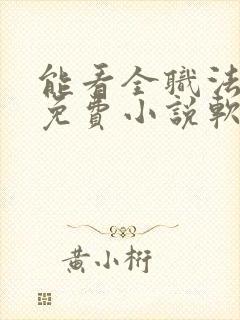 能看全職法
免費小說軟
黃小桁